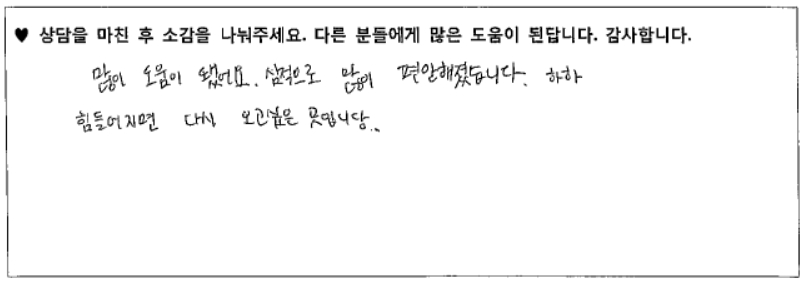 ♥ 상담을 마친 후 소감을 나눠주세요. 다른 분들에게 많은 도움이 된답니다. 감사합니다.
많이 도움이 됐어요. 심적으로 많이 편안해졌습니다. 하하
힘들어지면 다시 오고싶은 곳입니당..